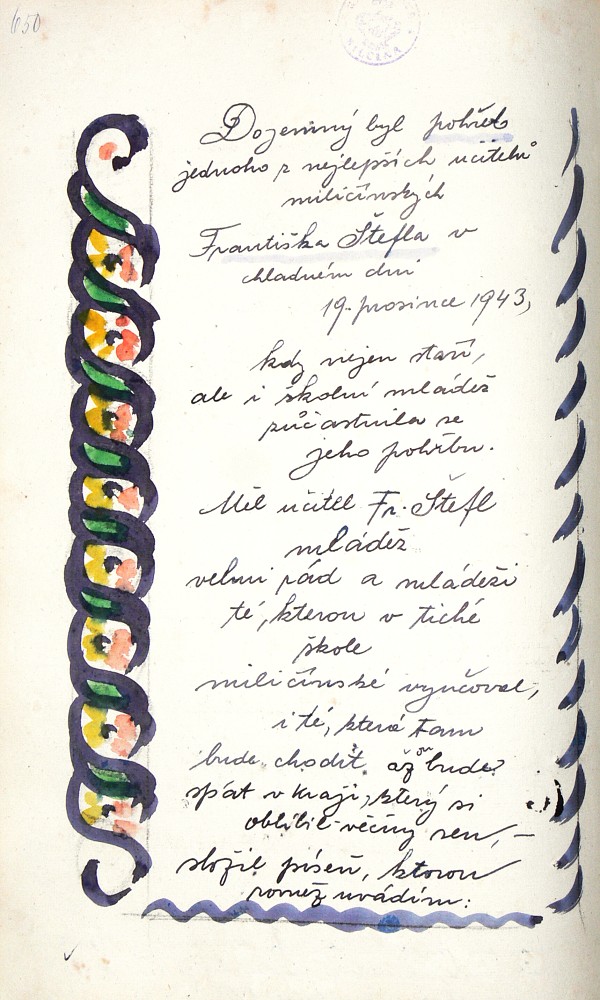 650
MILČÍN
Dojemný byl pohřeb
jednoho z nejlepších učitelů
miličínských
Františka Štefla v
chladném dni
19. prosince 1943,
kdy nejen staří,
ale i školní mládež
zúčastnila se
jeho pohřbu.
Měl učitel Fr. Štefl
mládež
velmi rád a mládeži
té, kterou v tiché
škole
miličínské vyučoval,
i té, která tam
bude chodit, až on bude
spát v kraji, který si
oblíbil věčný sen, –
složil píseň, kterou
rovněž uvádím: